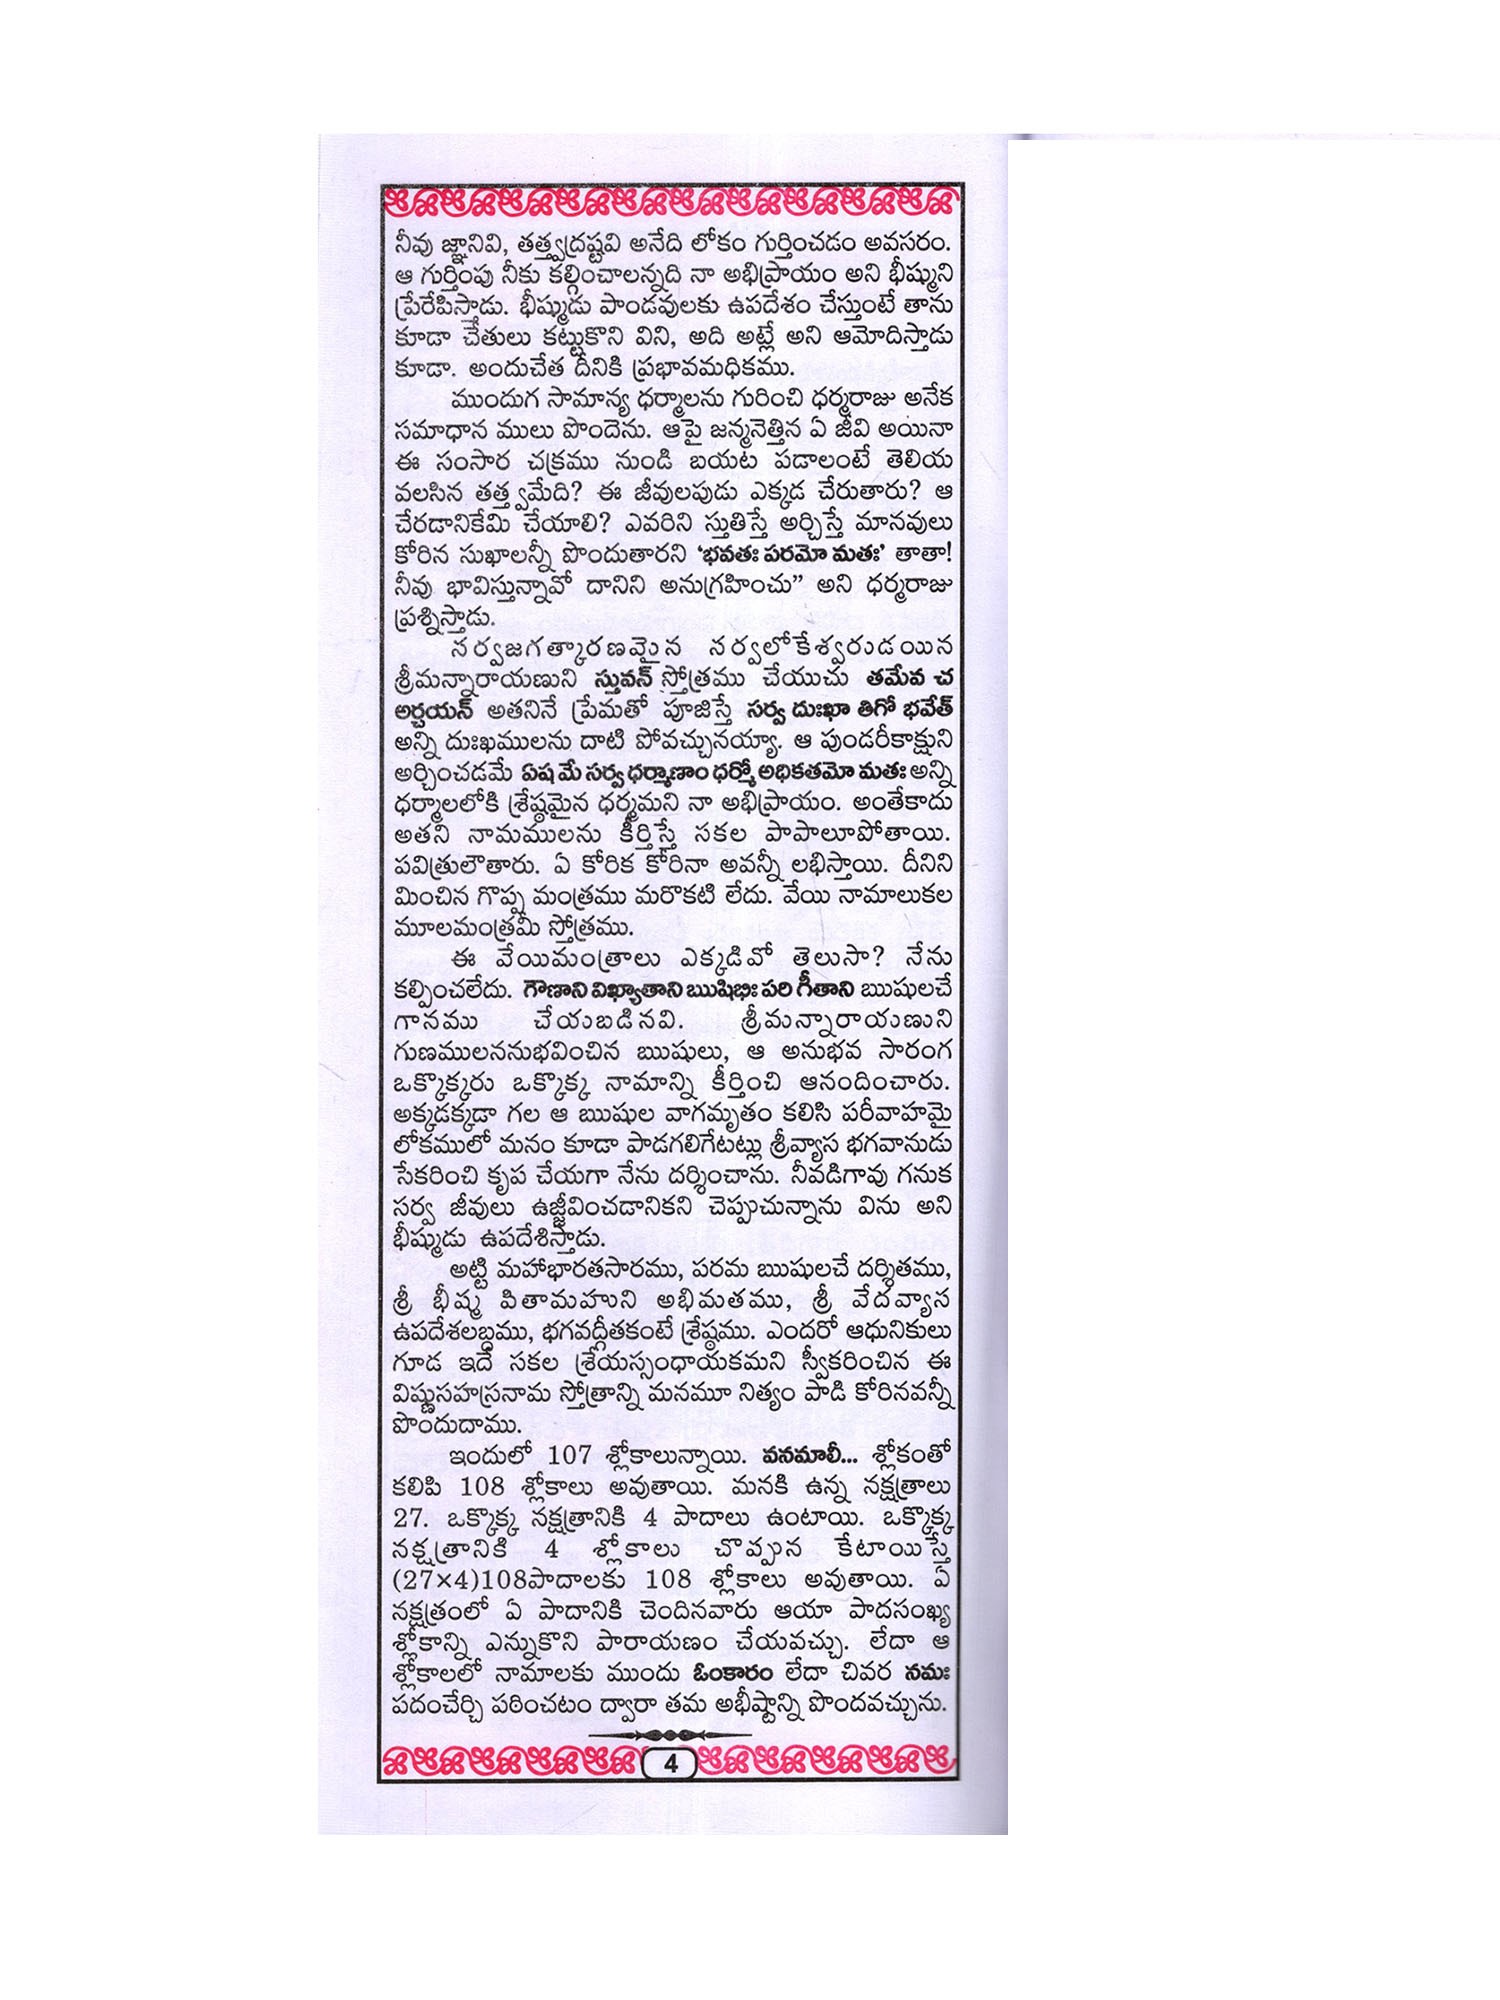 నీవు జ్ఞానివి, తత్త్వద్రష్టవి అనేది లోకం గుర్తించడం అవసరం.
ఆ గుర్తింపు నీకు కల్గించాలన్నది నా అభిప్రాయం అని భీష్ముని
ప్రేరేపిస్తాడు. భీష్ముడు పాండవులకు ఉపదేశం చేస్తుంటే తాను
కూడా చేతులు కట్టుకొని విని, అది అట్లే అని ఆమోదిస్తాడు
కూడా. అందుచేత దీనికి ప్రభావమధికము.
ముందుగ సామాన్య ధర్మాలను గురించి ధర్మరాజు అనేక
సమాధాన ములు పొందెను. ఆపై జన్మనెత్తిన ఏ జీవి అయినా
ఈ సంసార చక్రము నుండి బయట పడాలంటే తెలియ
వలసిన తత్త్వమేది? ఈ జీవులపుడు ఎక్కడ చేరుతారు? ఆ
చేరడానికేమి చేయాలి? ఎవరిని స్తుతిస్తే అర్చిస్తే మానవులు
కోరిన సుఖాలన్నీ పొందుతారని ‘భవతః పరమో మతః’ తాతా!
నీవు భావిస్తున్నావో దానిని అనుగ్రహించు” అని ధర్మరాజు
ప్రశ్నిస్తాడు.
సర్వజగత్కారణమైన సర్వలోకేశ్వరుడయిన
శ్రీమన్నారాయణుని స్తువన్ స్తోత్రము చేయుచు తమేవ చ
అర్చయన్ అతనినే ప్రేమతో పూజిస్తే సర్వ దుఃఖా తిగో భవేత్
అన్ని దుఃఖములను దాటి పోవచ్చునయ్యా. ఆ పుండరీకాక్షుని
అర్చించడమే ఏష మే సర్వధర్మాణాం ధర్మో అధికతమో మతః అన్ని
ధర్మాలలోకి శ్రేష్ఠమైన ధర్మమని నా అభిప్రాయం. అంతేకాదు
అతని నామములను కీర్తిస్తే సకల పాపాలూపోతాయి.
పవిత్రులౌతారు. ఏ కోరిక కోరినా అవన్నీ లభిస్తాయి. దీనిని
మించిన గొప్ప మంత్రము మరొకటి లేదు. వేయి నామాలుకల
మూలమంత్రమీ స్తోత్రము.
ఈ వేయిమంత్రాలు ఎక్కడివో తెలుసా? నేను
కల్పించలేదు. గౌణాని విఖ్యాతాని ఋషిభిః పరి గీతాని ఋషులచే
గానము చేయబడినవి. శ్రీమన్నారాయణుని
గుణములననుభవించిన ఋషులు, ఆ అనుభవ సారంగ
ఒక్కొక్కరు ఒక్కొక్క నామాన్ని కీర్తించి ఆనందించారు.
అక్కడక్కడా గల ఆ ఋషుల వాగమృతం కలిసి పరీవాహమై
లోకములో మనం కూడా పాడగలిగేటట్లు శ్రీవ్యాస భగవానుడు
సేకరించి కృప చేయగా నేను దర్శించాను. నీవడిగావు గనుక
సర్వ జీవులు ఉజ్జీవించడానికని చెప్పుచున్నాను విను అని
భీష్ముడు ఉపదేశిస్తాడు.
అట్టి మహాభారతసారము, పరమ ఋషులచే దర్శితము,
శ్రీ భీష్మ పితామహుని అభిమతము, శ్రీ వేదవ్యాస
ఉపదేశలబ్ధము, భగవద్గీతకంటే శ్రేష్ఠము. ఎందరో ఆధునికులు
గూడ ఇదే సకల శ్రేయస్సంధాయకమని స్వీకరించిన ఈ
విష్ణుసహస్రనామ స్తోత్రాన్ని మనమూ నిత్యం పాడి కోరినవన్నీ
పొందుదాము.
ఇందులో 107 శ్లోకాలున్నాయి. వనమాలీ... శ్లోకంతో
కలిపి 108 శ్లోకాలు అవుతాయి. మనకి ఉన్న నక్షత్రాలు
27. ఒక్కొక్క నక్షత్రానికి 4 పాదాలు ఉంటాయి. ఒక్కొక్క
నక్షత్రానికి 4 శ్లోకాలు చొప్పున కేటాయిస్తే
(27×4)108పాదాలకు 108 శ్లోకాలు అవుతాయి. ఏ
నక్షత్రంలో ఏ పాదానికి చెందినవారు ఆయా పాదసంఖ్య
శ్లోకాన్ని ఎన్నుకొని పారాయణం చేయవచ్చు. లేదా ఆ
శ్లోకాలలో నామాలకు ముందు ఓంకారం లేదా చివర నమః
పదంచేర్చి పఠించటం ద్వారా తమ అభీష్టాన్ని పొందవచ్చును.
4